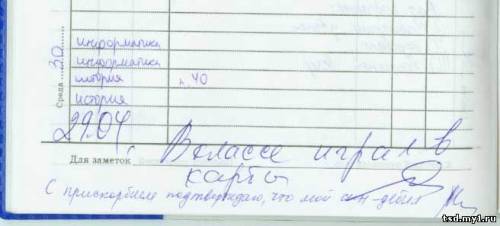 Среда 30
информатика
информатика
история п. 40
история
29.04.
Для заметок В классе играл в
карты
С прискорбием подтверждаю, что мой сын - дебил
tsd.my1.ru